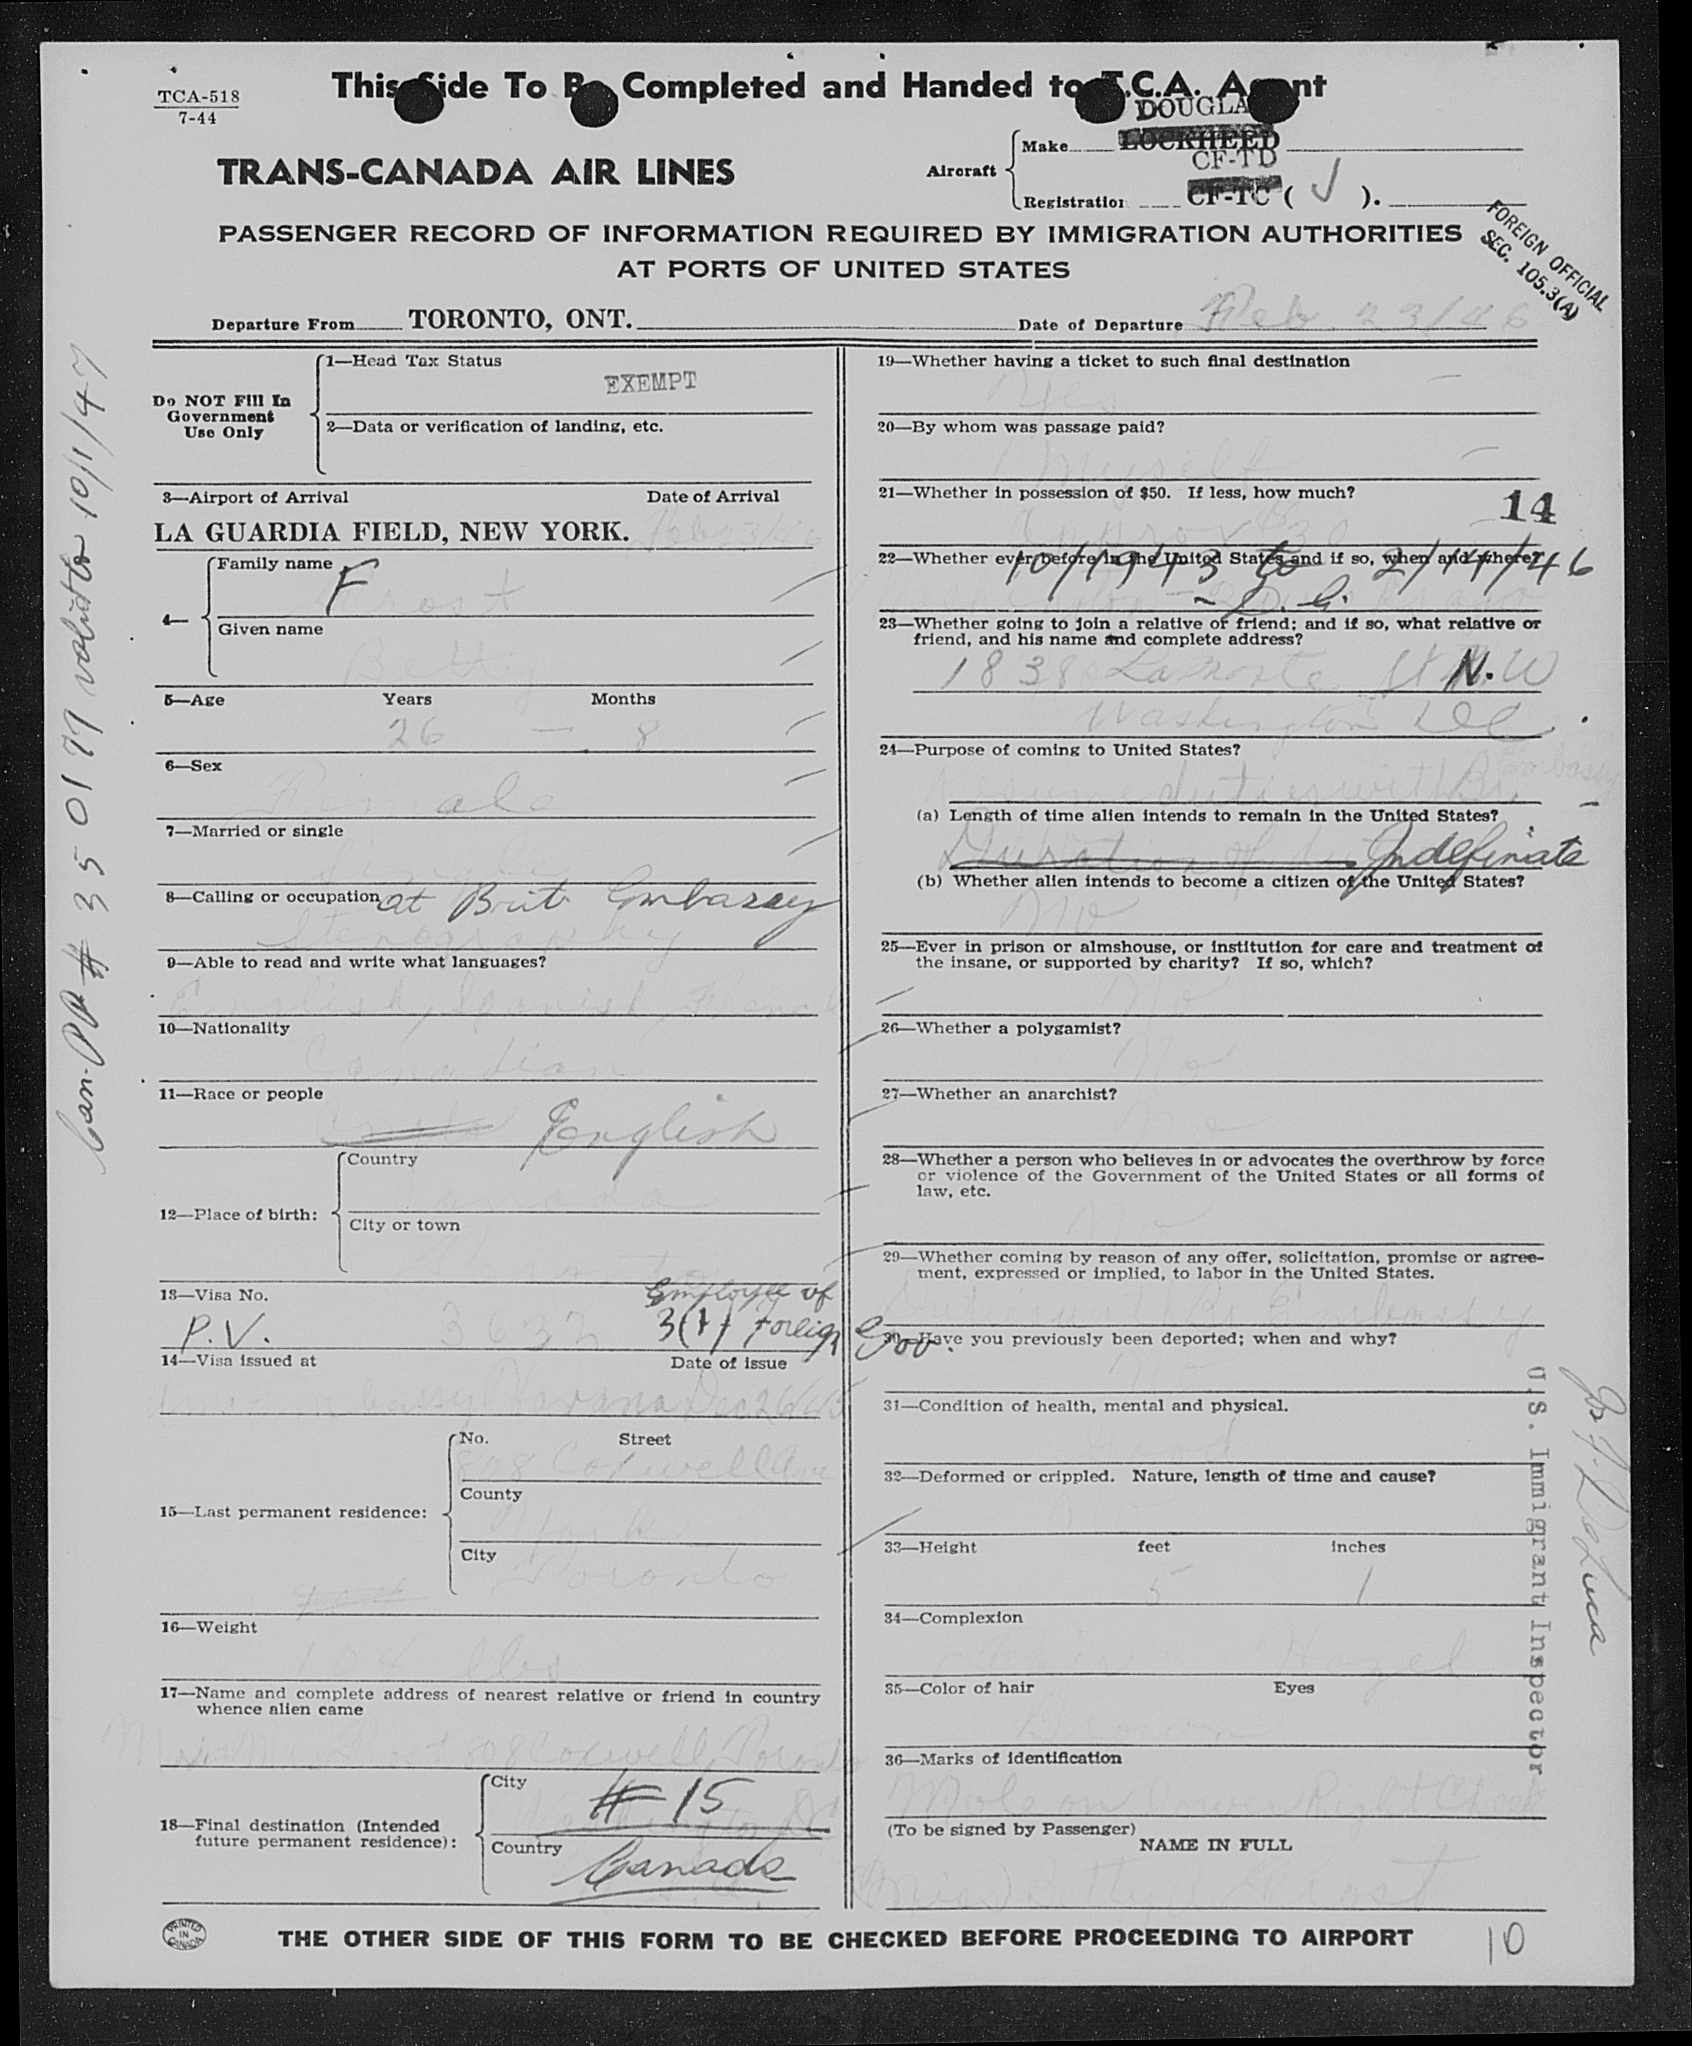 This Side To Be Completed and Handed to T.C.A. Agent
TCA-518
7-44
DOUGLA
Aircraft
Make LOCKHEED
CF-TD
Registration CF-TC ( J ).
TRANS-CANADA AIR LINES
PASSENGER RECORD OF INFORMATION REQUIRED BY IMMIGRATION AUTHORITIES
AT PORTS OF UNITED STATES
FOREIGN OFFICIAL
SEC. 105.3(A)
Departure From TORONTO, ONT. Date of Departure Feb. 23/46
Do NOT Fill In
Government
Use Only
1—Head Tax Status
EXEMPT
2—Data or verification of landing, etc.
3—Airport of Arrival Date of Arrival
LA GUARDIA FIELD, NEW YORK. Feb 23/46
4—
Family name
F Frost
Given name
Betty
5—Age Years Months
26 — 8
6—Sex
Female
7—Married or single
Single
8—Calling or occupation at Brit. Embassy
Stenography
9—Able to read and write what languages?
English, Spanish, French
10—Nationality
Canadian
11—Race or people
English
12—Place of birth:
Country
Canada
City or town
13—Visa No. Employee of
P.V. 3632 3(1) Foreign Gov.
14—Visa issued at Date of issue
Havana Dec 26/45
15—Last permanent residence:
No. Street
808 Coxwell Ave
County
York
City
Toronto
16—Weight
104 lbs
17—Name and complete address of nearest relative or friend in country
whence alien came
Frost 808 Coxwell, Toronto
18—Final destination (Intended
future permanent residence):
City
# 15
Washington DC
Country
Canada
19—Whether having a ticket to such final destination
Yes
20—By whom was passage paid?
Myself
21—Whether in possession of $50. If less, how much?
14
Approx $30
22—Whether ever before in the United States and if so, when and where?
10/1943 to 2/14/46
- D.C.
23—Whether going to join a relative or friend; and if so, what relative or
friend, and his name and complete address?
1838 Lamonte St N.W
Washington DC
24—Purpose of coming to United States?
Resume duties with Br. Embassy
(a) Length of time alien intends to remain in the United States?
Duration of Indefinate
(b) Whether alien intends to become a citizen of the United States?
No
25—Ever in prison or almshouse, or institution for care and treatment of
the insane, or supported by charity? If so, which?
No
26—Whether a polygamist?
No
27—Whether an anarchist?
No
28—Whether a person who believes in or advocates the overthrow by force
or violence of the Government of the United States or all forms of
law, etc.
No
29—Whether coming by reason of any offer, solicitation, promise or agree-
ment, expressed or implied, to labor in the United States.
Br Embassy
30—Have you previously been deported; when and why?
No
31—Condition of health, mental and physical.
Good
32—Deformed or crippled. Nature, length of time and cause?
33—Height feet inches
5 1
34—Complexion
Hazel
35—Color of hair Eyes
Brown
36—Marks of identification
Mole on lower Right Cheek
(To be signed by Passenger)
NAME IN FULL
Miss Betty Frost
U.S. Immigrant Inspector
Jos F. DeLuca
Can. PP # 35 0177 valid to 10/1/47
PRINTED IN CANADA
THE OTHER SIDE OF THIS FORM TO BE CHECKED BEFORE PROCEEDING TO AIRPORT
10